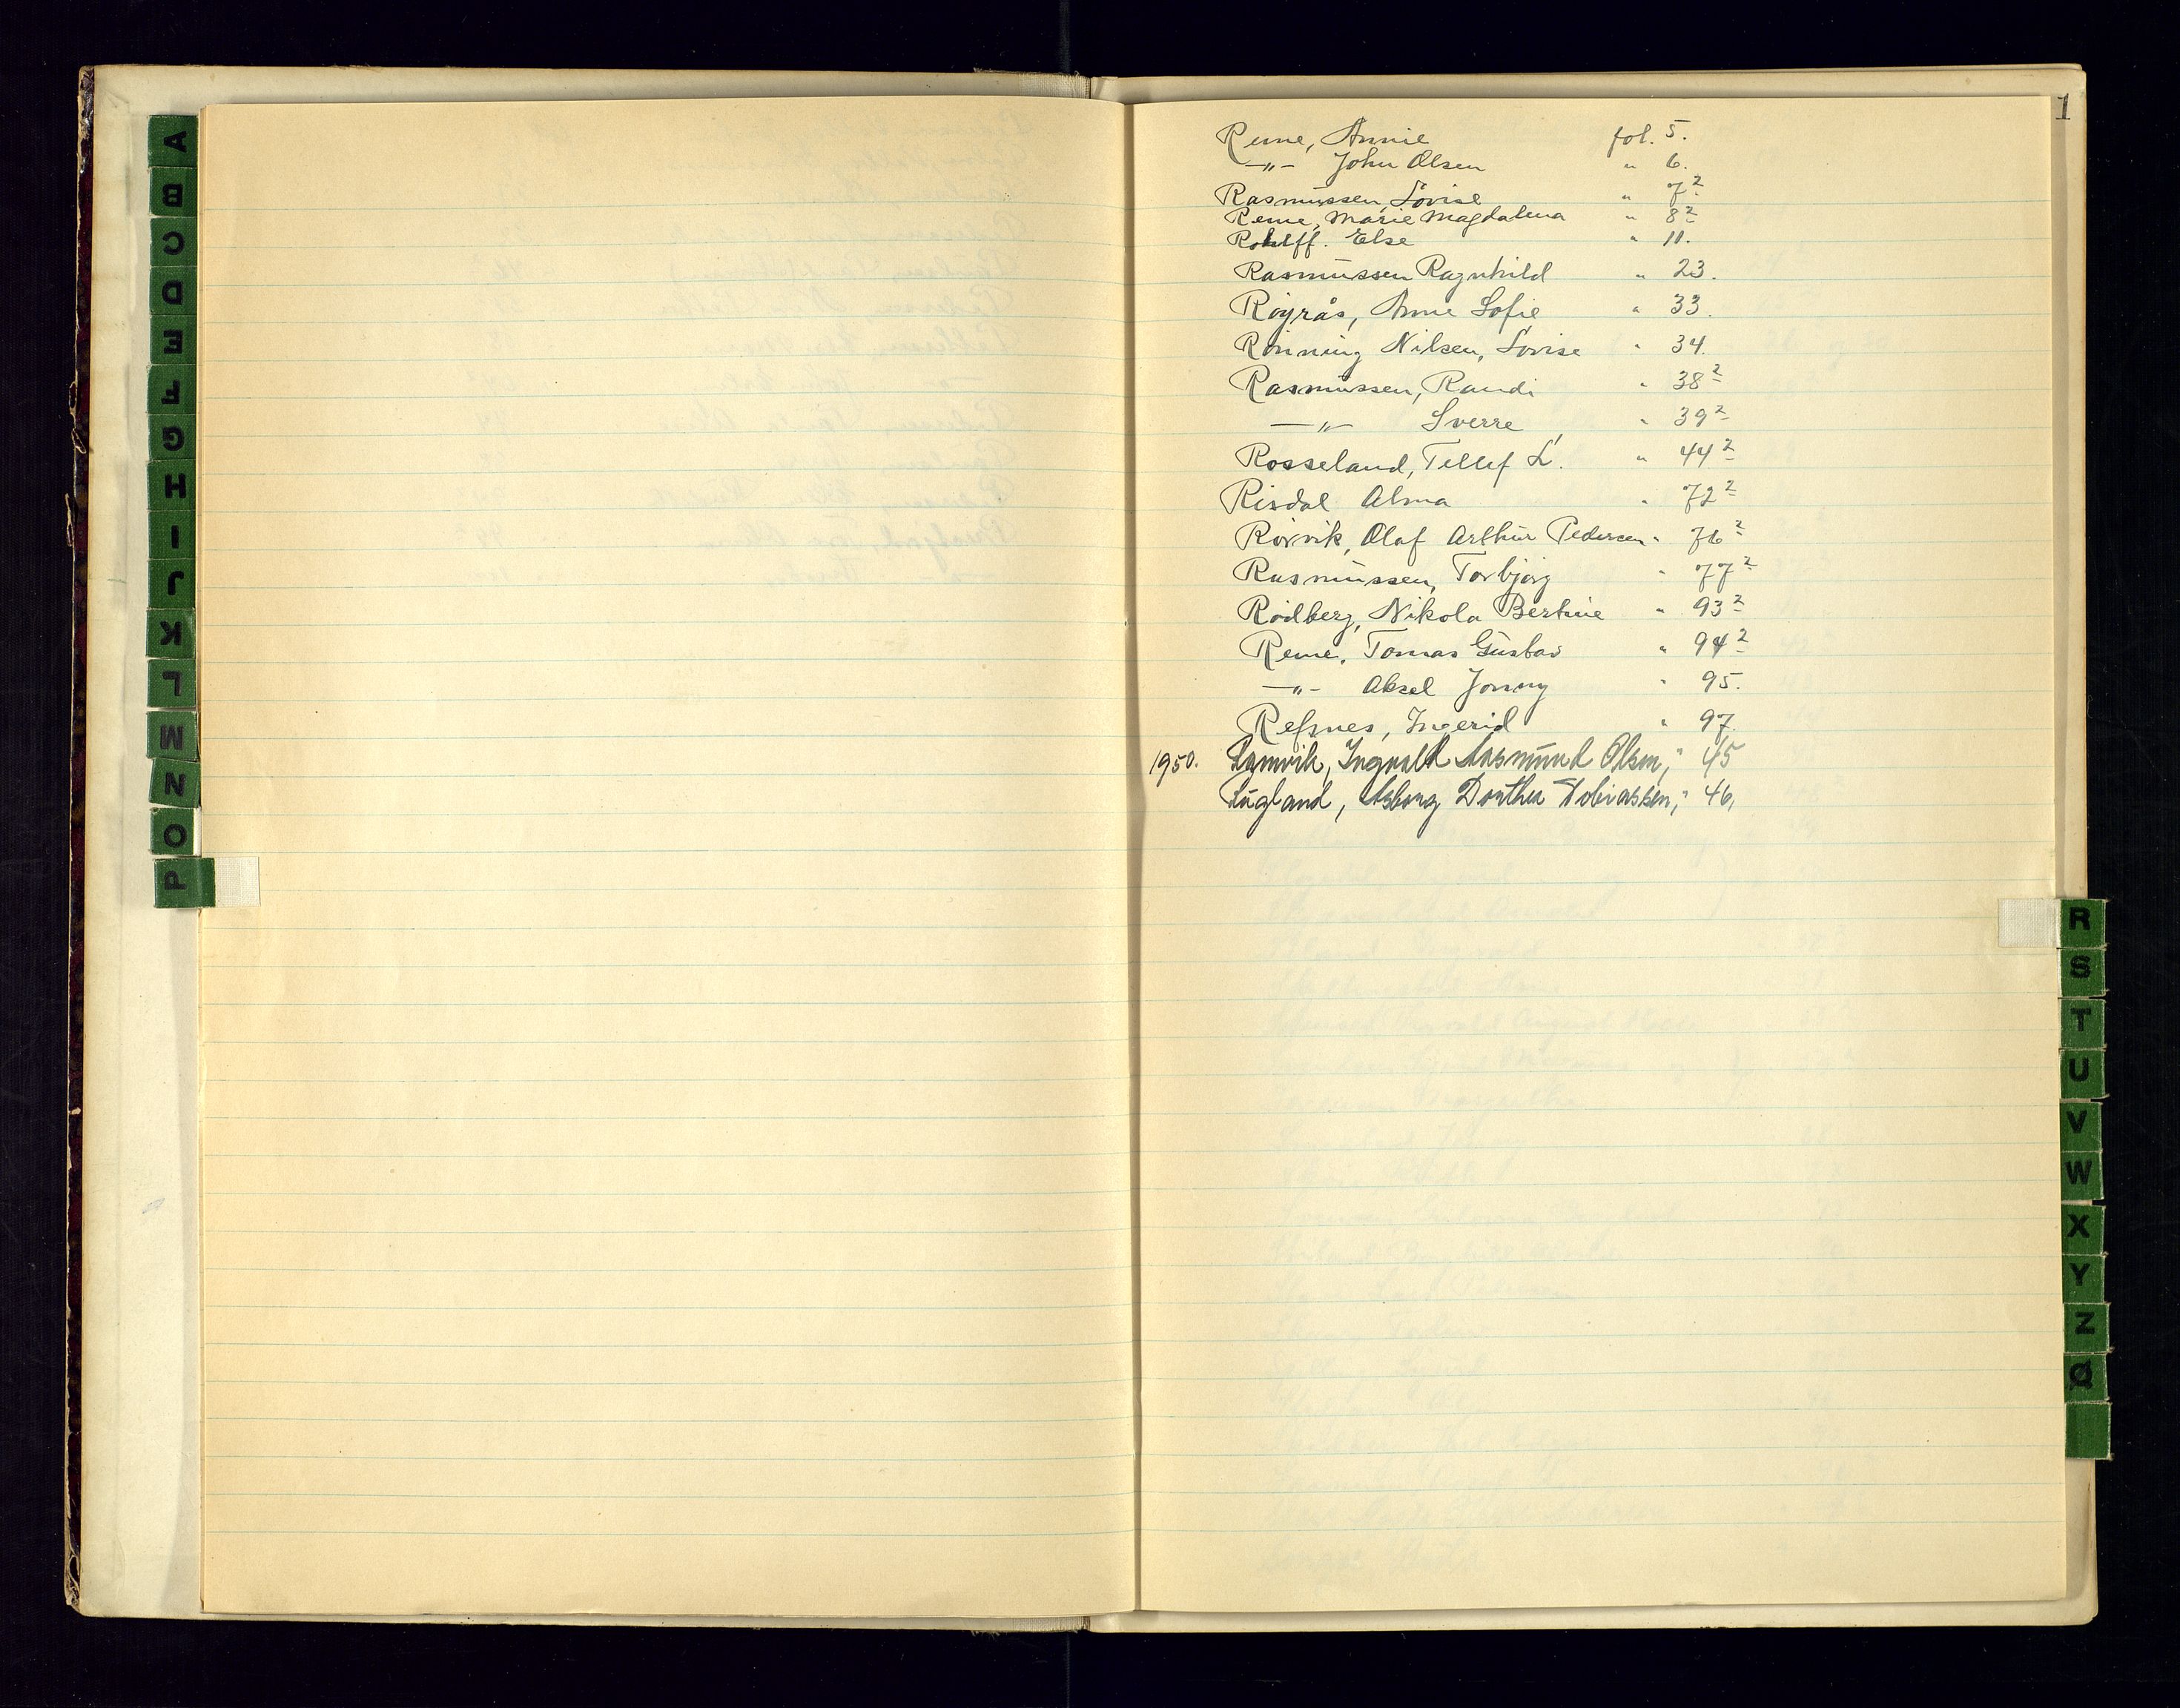 A
B
C
D
E
F
G
H
I
J
K
L
M
N
O
P
1
Reme, Annie fol. 5.
—"— John Olsen " 6.
Rasmussen, Lovise " 7²
Reme, Marie Magdalena " 8²
Rohlff. Else " 11.
Rasmussen Ragnhild " 23.
Røyrås, Anne Sofie " 33.
Rønning Nilsen, Lovise " 34.
Rasmussen, Randi " 38²
—"— Sverre " 39²
Rosseland, Tellef L. " 44²
Risdal Alma " 72²
Rørvik, Olaf Arthur Pedersen " 76²
Rasmussen, Torbjørg " 77²
Rödberg, Nikola Bertine " 93²
Reme, Tomas Gustav " 94²
—"— Aksel Jonny " 95.
Refsnes, Ingerid " 97.
1950. Ramvik, Ingvald Aasmund Olsen, " 45
Rugland, Asborg Dorthea Tobiassen, " 46,
R
S
T
U
V
W
X
Y
Z
Q